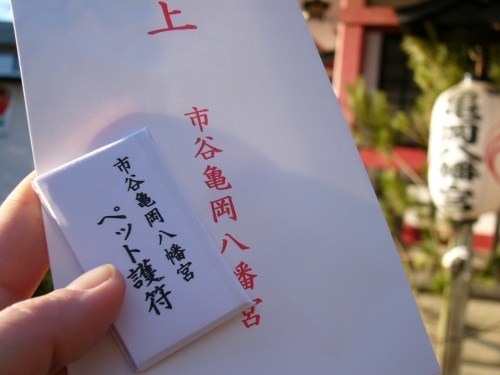 上
市谷亀岡八幡宮
市谷亀岡八幡宮
ペット護符
亀岡八幡宮